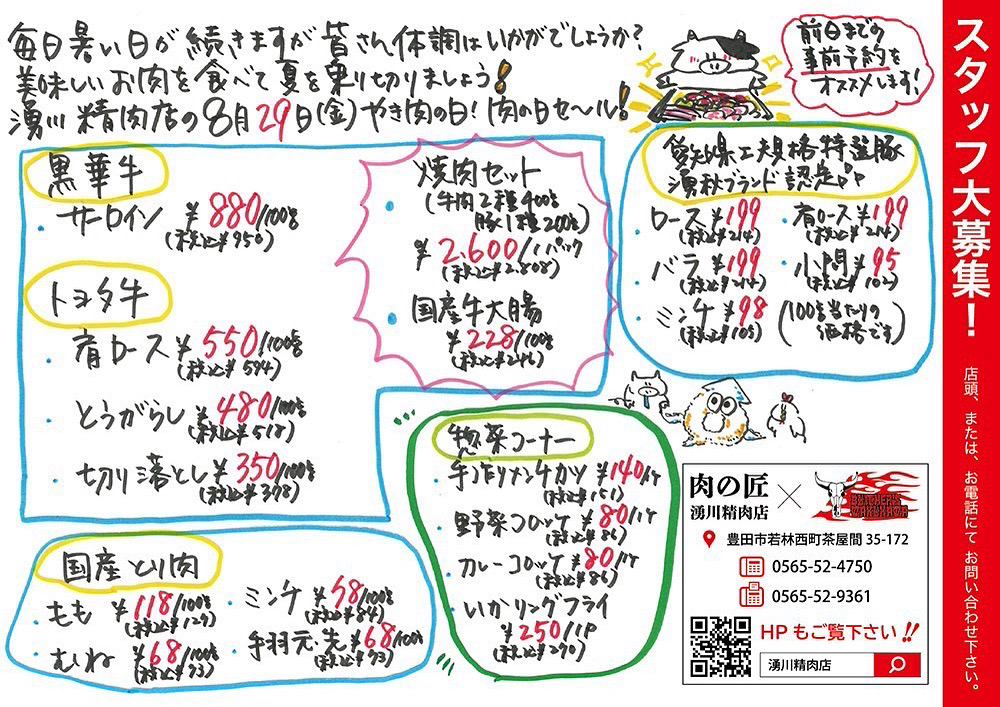 毎日暑い日が続きますが皆さん体調はいかがでしょうか?
美味しいお肉を食べて夏を乗り切りましょう!
湧川精肉店の8月29日(金)やき肉の日!肉の日セール!
前日までの
事前予約を
オススメします!
黒華牛
・サーロイン ¥880/100g
(税込¥950)
トヨタ牛
・肩ロース ¥550/100g
(税込¥594)
・とうがらし ¥480/100g
(税込¥518)
・切り落とし ¥350/100g
(税込¥378)
・焼肉セット
(牛肉2種400g
豚1種200g)
¥2.600/1パック
(税込¥2.808)
・国産牛大腸
¥228/100g
(税込¥246)
愛知県工規格特選豚
湧秋ブランド認定店
・ロース¥199
(税込¥214)
・肩ロース¥199
(税込¥214)
・バラ¥199
(税込¥214)
・小間¥95
(税込¥102)
・ミンチ¥98
(税込¥105)
(100g当たりの
価格です)
惣菜コーナー
・手作りメンチカツ ¥140/1ケ
(税込¥151)
・野菜コロッケ¥80/1ケ
(税込¥86)
・カレーコロッケ¥80/1ケ
(税込¥86)
・いかリングフライ
¥250/1P
(税込¥270)
国産とり肉
・もも ¥118/100g
(税込¥127)
・むね ¥68/100g
(税込¥73)
・ミンチ ¥78/100g
(税込¥84)
・手羽元・先¥68/100g
(税込¥73)
肉の匠
湧川精肉店
×
豊田市若林西町茶屋間 35-172
0565-52-4750
0565-52-9361
HP もご覧下さい!!
湧川精肉店
スタッフ大募集!
店頭、または、お電話にてお問い合わせ下さい。